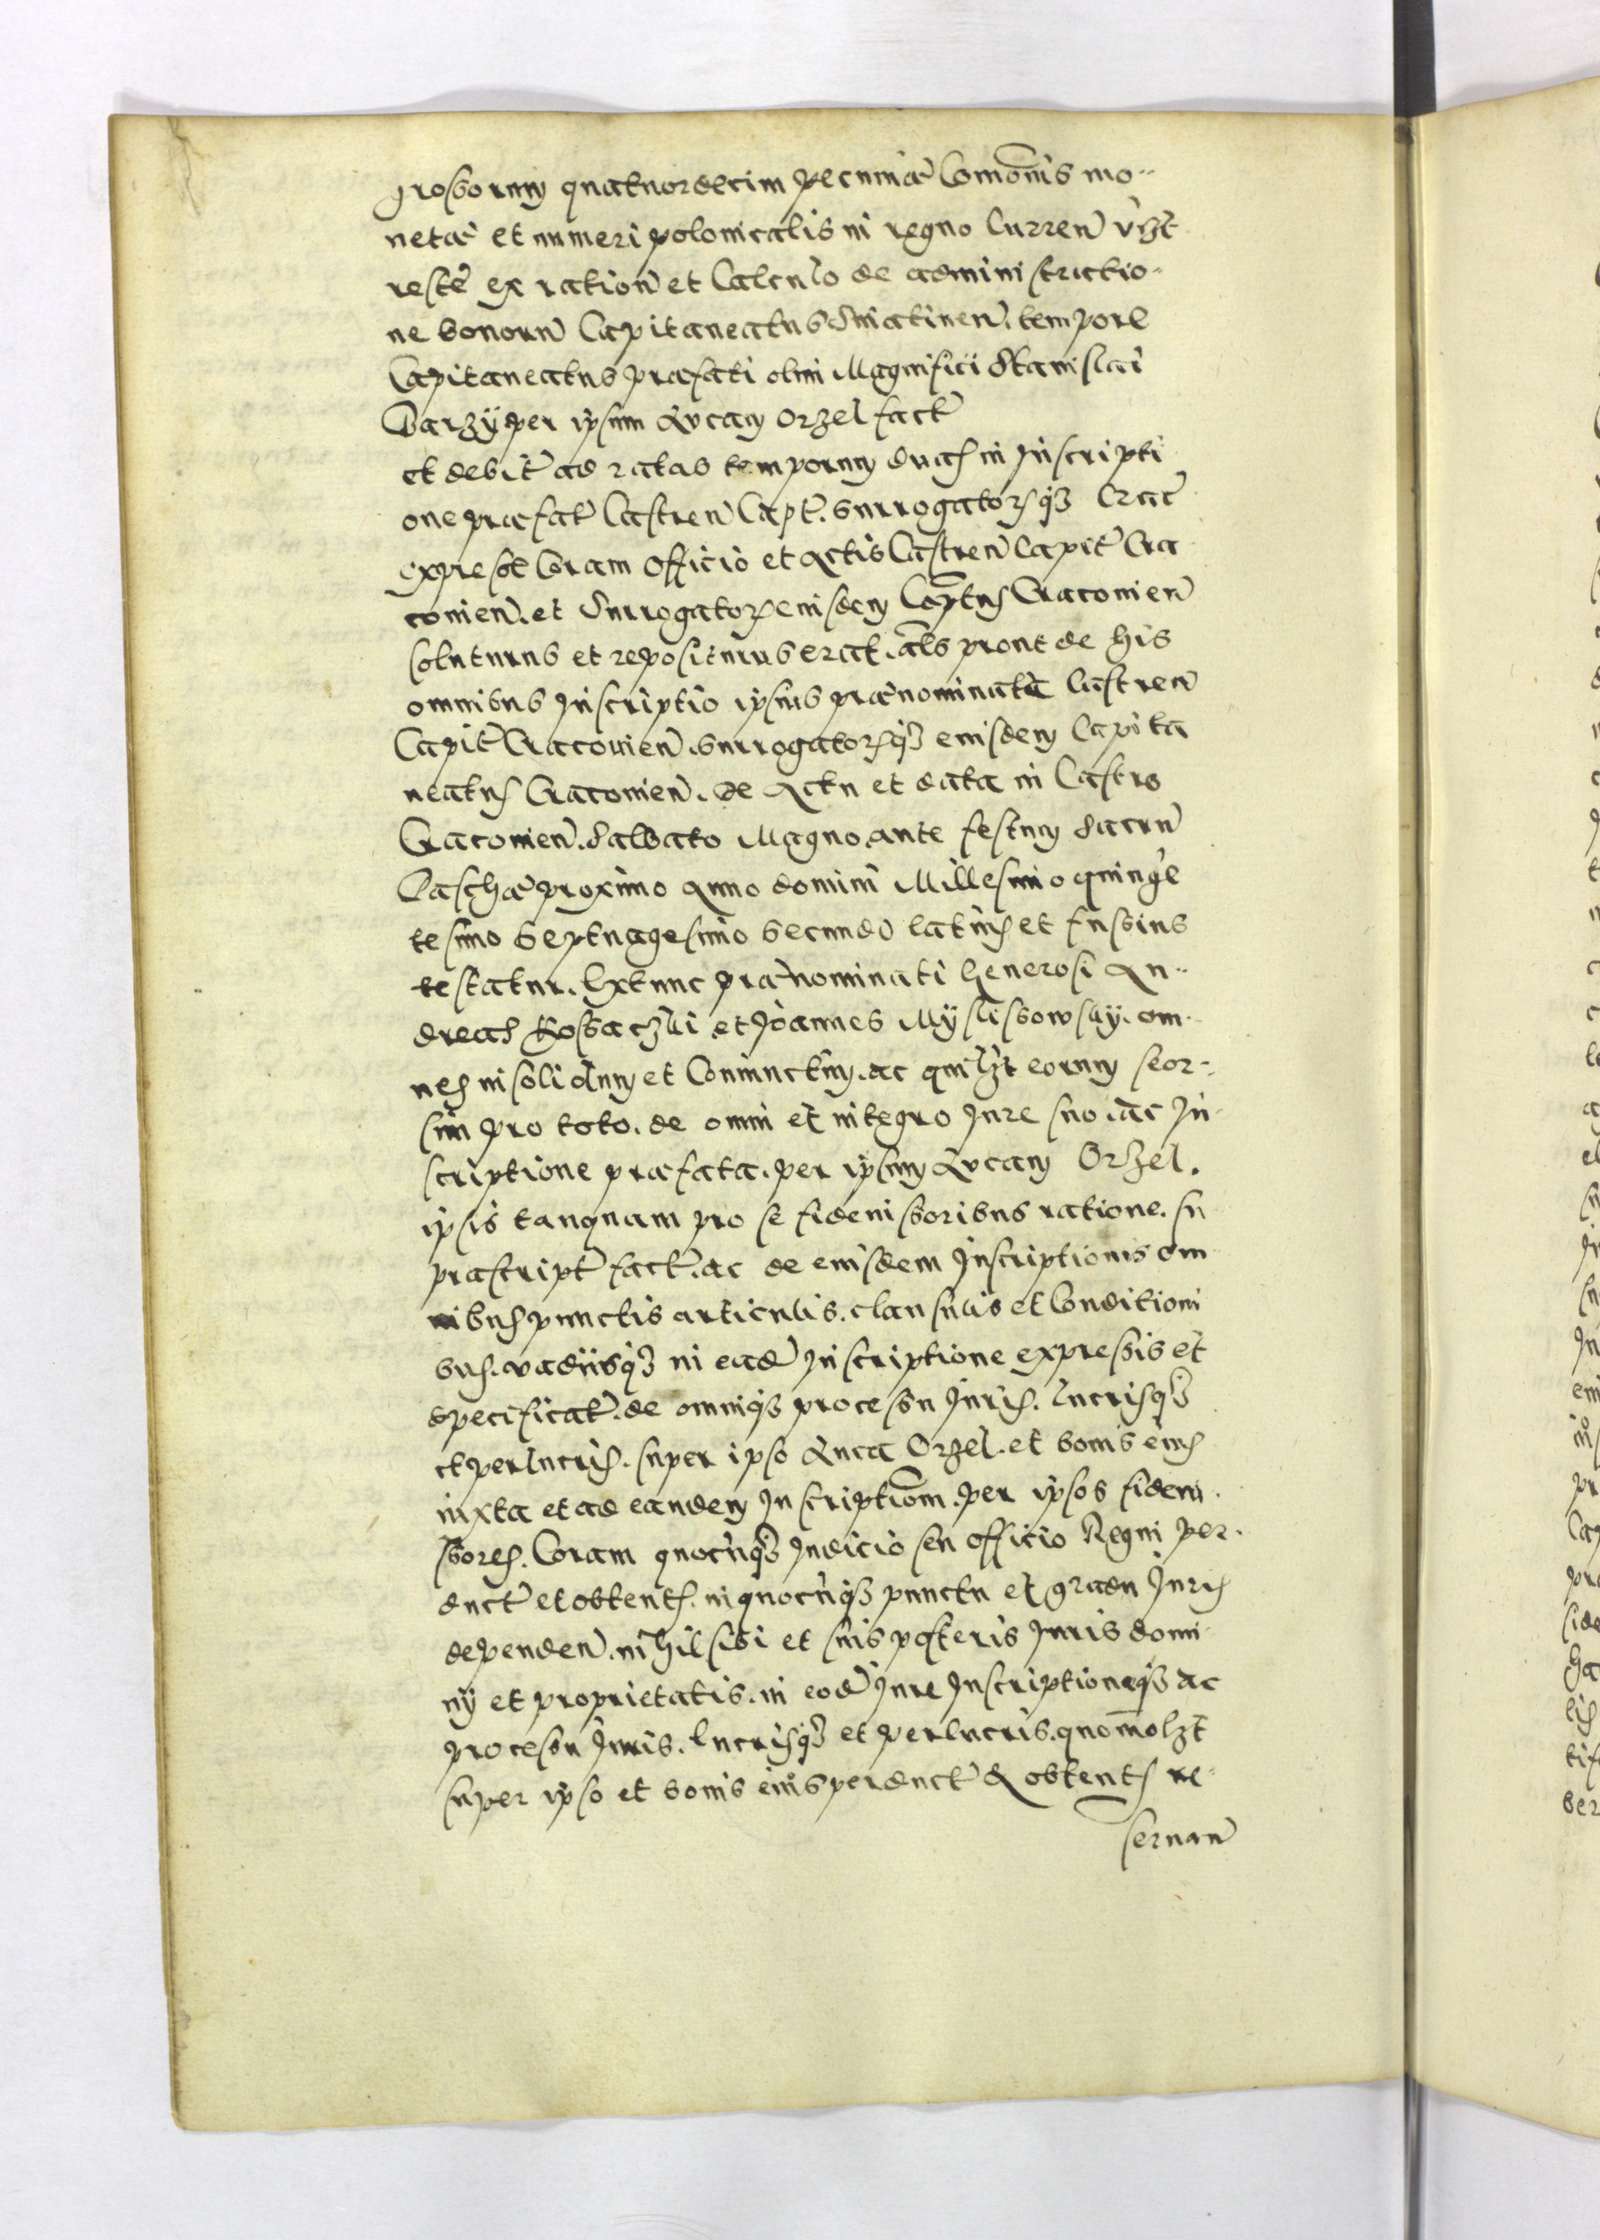 grossorum quatuordecim pecuniae Com̃onis mo-
netae et numeri polonicalis in regno Curren̄ vtz̄
reste ex ration̄ et Calculo de administractio-
ne bonorū Capitaneatus Sniatinen̄. tempore
Capitaneatus praefati olim Magnifici Stanislai
Barzÿ per ipsum Lucam Orzel fact̄
et debit̄ ad ratas temporum duas in Inscripti
one praefat̄ Castren̄ Capt̄. surrogatorqȝ Crac̄
expresst̄ Coram Officio et Actis Castren̄ Capit̄ Cra
couien̄. et Surrogator eiusdem Captus Cracouien̄
soluturus et repositurus erat. al̄s prout de his
omnibus Inscriptio ipsius praenominata Castren̄
Capit̄ Cracouien̄. surrogatorqȝ eiusdem Capita
neatus Cracouien̄. de Actu et data in Castro
Cracouien̄. Sabbato Magno. ante festum Sacrū
Paschae proximo Anno domini Millesimo quinge
tesimo Septuagesimo Secundo latius et fussius
testatur. Extunc praenominati Generosi An-
dreas Kossaczki et Joannes Mÿslissowskÿ. om-
nes in solidum et Coniunctim. ac quilzt eorum seor-
sim pro toto. de omni et integro Jure suo. ac In-
scriptione praefata. per ipsum Lucam Orzel.
ipsis tanquam pro se fideiussoribus ratione. su
prascript̄ fact̄. ac de eiusdem Inscriptionis om
nibus punctis articulis. clausulis et Conditioni
bus. vadiisqȝ in eadē Inscriptione expressis et
specificat̄. de omniqȝ processu Juris. lucrisqȝ
et perlucris. super ipso Luca Orzel. et bonis eius
iuxta et ad eandem Inscriptiom̄. per ipsos fideiu.
ssores. Coram quocūqȝ Judicio seu officio Regni per-
duct̄ et obtentis. in quocūqȝ punctu et gradu Juris
dependen̄. nihil sibi et suis posteris Juris domi-
nÿ et proprietatis. in eodē Jure Inscriptioneqȝ ac
processu Juris. lucrisqȝ et perlucris. quom̄olzt
super ipso et bonis eius perduct̄ & obtentis re-
seruan̄